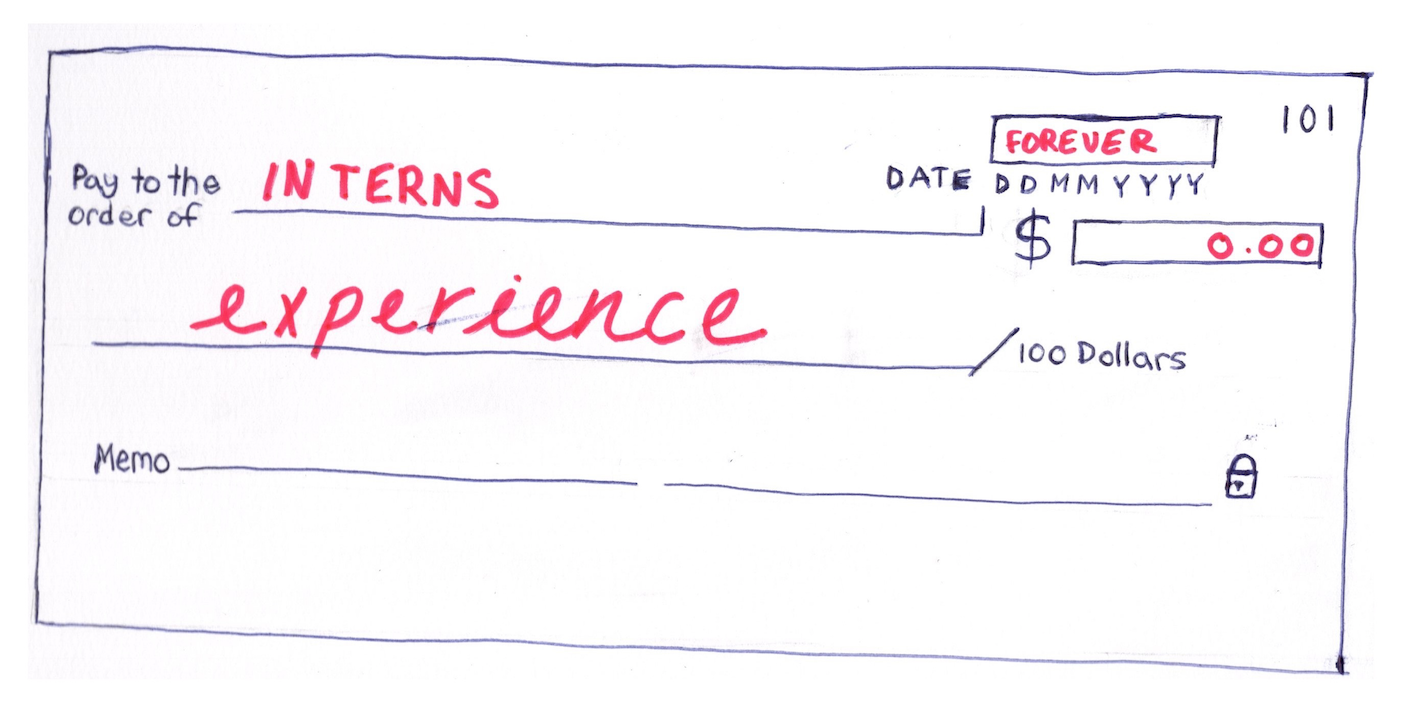 101
FOREVER
DATE DDMMYYYY
Pay to the order of INTERNS
$ 0.00
experience /100 Dollars
Memo